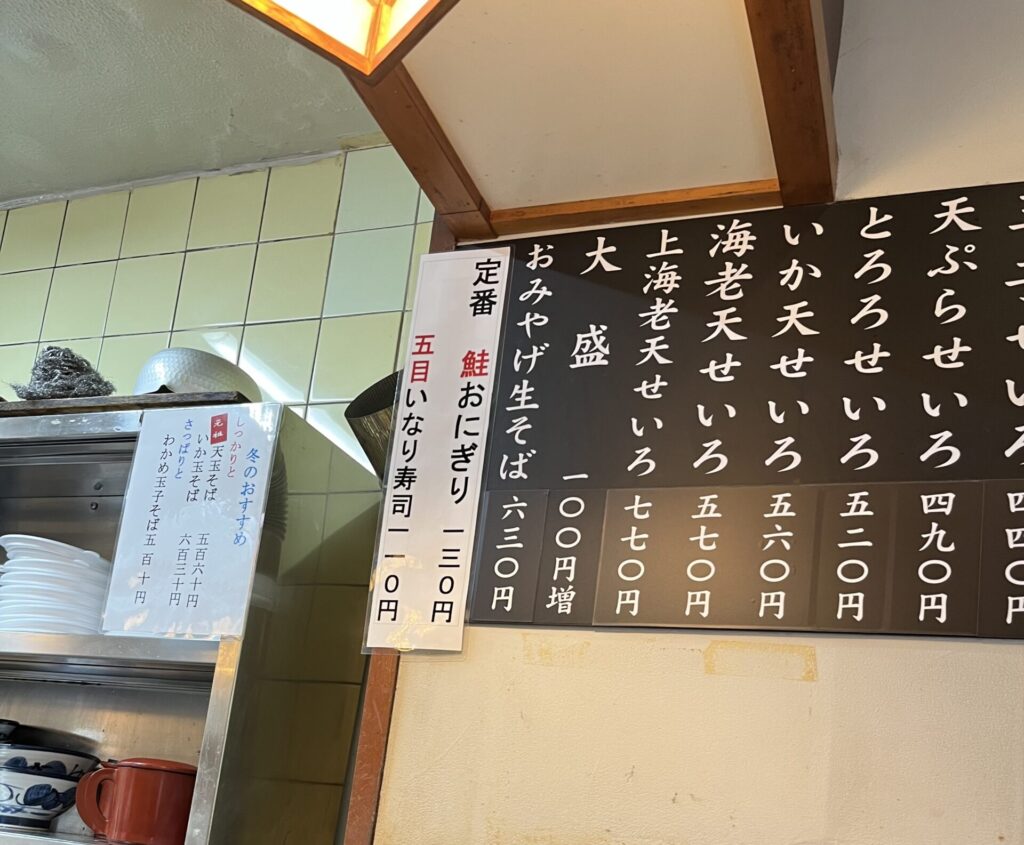 天ぷらせいろ 四九〇円
とろろせいろ 五二〇円
いか天せいろ 五六〇円
海老天せいろ 五七〇円
上海老天せいろ 七七〇円
大盛 一〇〇円増
おみやげ生そば 六三〇円
定番 鮭おにぎり 一三〇円
五目いなり寿司 一一〇円
冬のおすすめ
しっかりと
元祖 天玉そば 五百六十円
いか玉そば 六百三十円
さっぱりと
わかめ玉子そば 五百十円